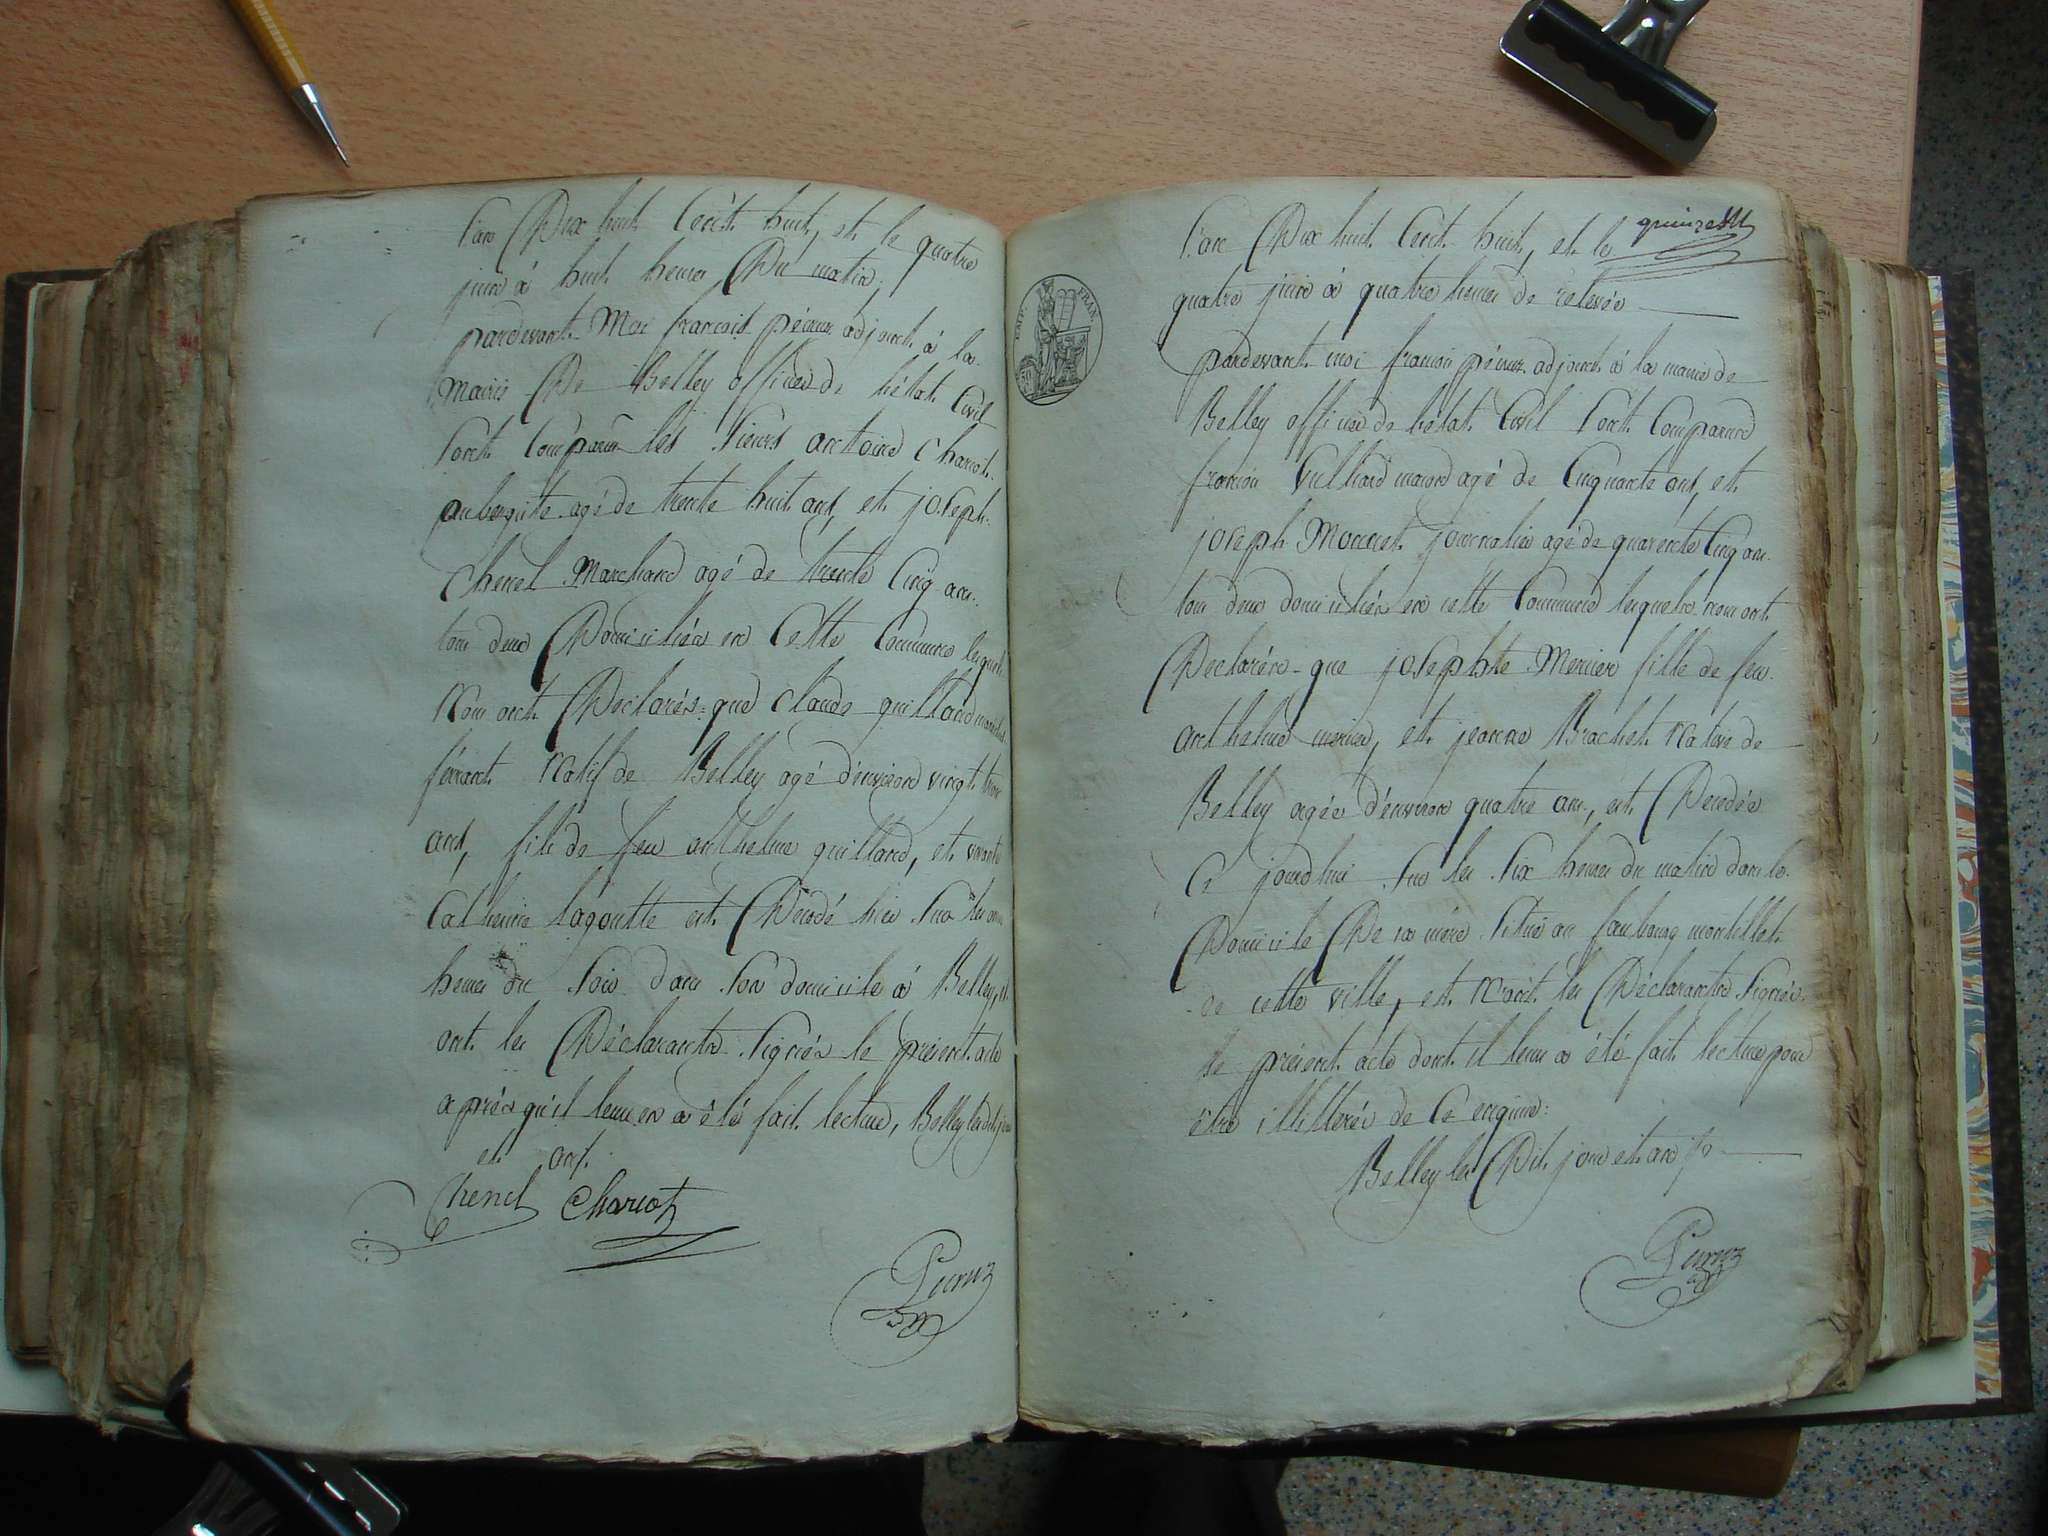 l'an Dix huit Cent huit, et le quatre
juin à huit heures Du matin.
pardevant Moi francois péruz adjoint à la
Mairie De Belley officier de l'état Civil
sont Comparu les sieurs antoine Charcot
aubergiste agé de trente huit ans, et joseph
Chenel Marchand agé de trente Cinq ans
tous deux Domiciliés en Cette Commune lesquels
Nous ont Déclarés que claude guilland maréchal
ferrant Natif de Belley agé d'environ vingt trois
ans, fils de feu anthelme guilland, et vivante
Catherine lagoutte est Décédé hier sur les
heures du soir dans son domicile à Belley, et
ont les Déclarants signés le présent acte
après qu'il leur en a été fait lecture, Belley les dit jour
et an.
Chenel Charcot
Péruz
EMP. FRAN.
quinze
l'an Dix huit Cent huit, et le
quatre juin à quatre heures de relevée
pardevant moi francois péruz adjoint à la mairie de
Belley officier de l'état Civil sont Comparu
francois Vulliard macon agé de Cinquante ans, et
joseph Monnet journalier agé de quarente Cinq ans
tous deux domiciliés en cette Commune lesquels nous ont
Declarés que josephte Mercier fille de feu
anthelme mercier, et jeanne Brachet Native de
Belley agée d'environ quatre ans, est Decedée
Ce jourdhui sur les six heures du matin dans le
Domicile De sa mère situé au faubourg montillet
de cette ville, et n'ont les Déclarants signés
le présent acte dont il leur a été fait lecture pour
être illitterés de Ce enquis:
Belley les Dit jour et an
Péruz
adjt